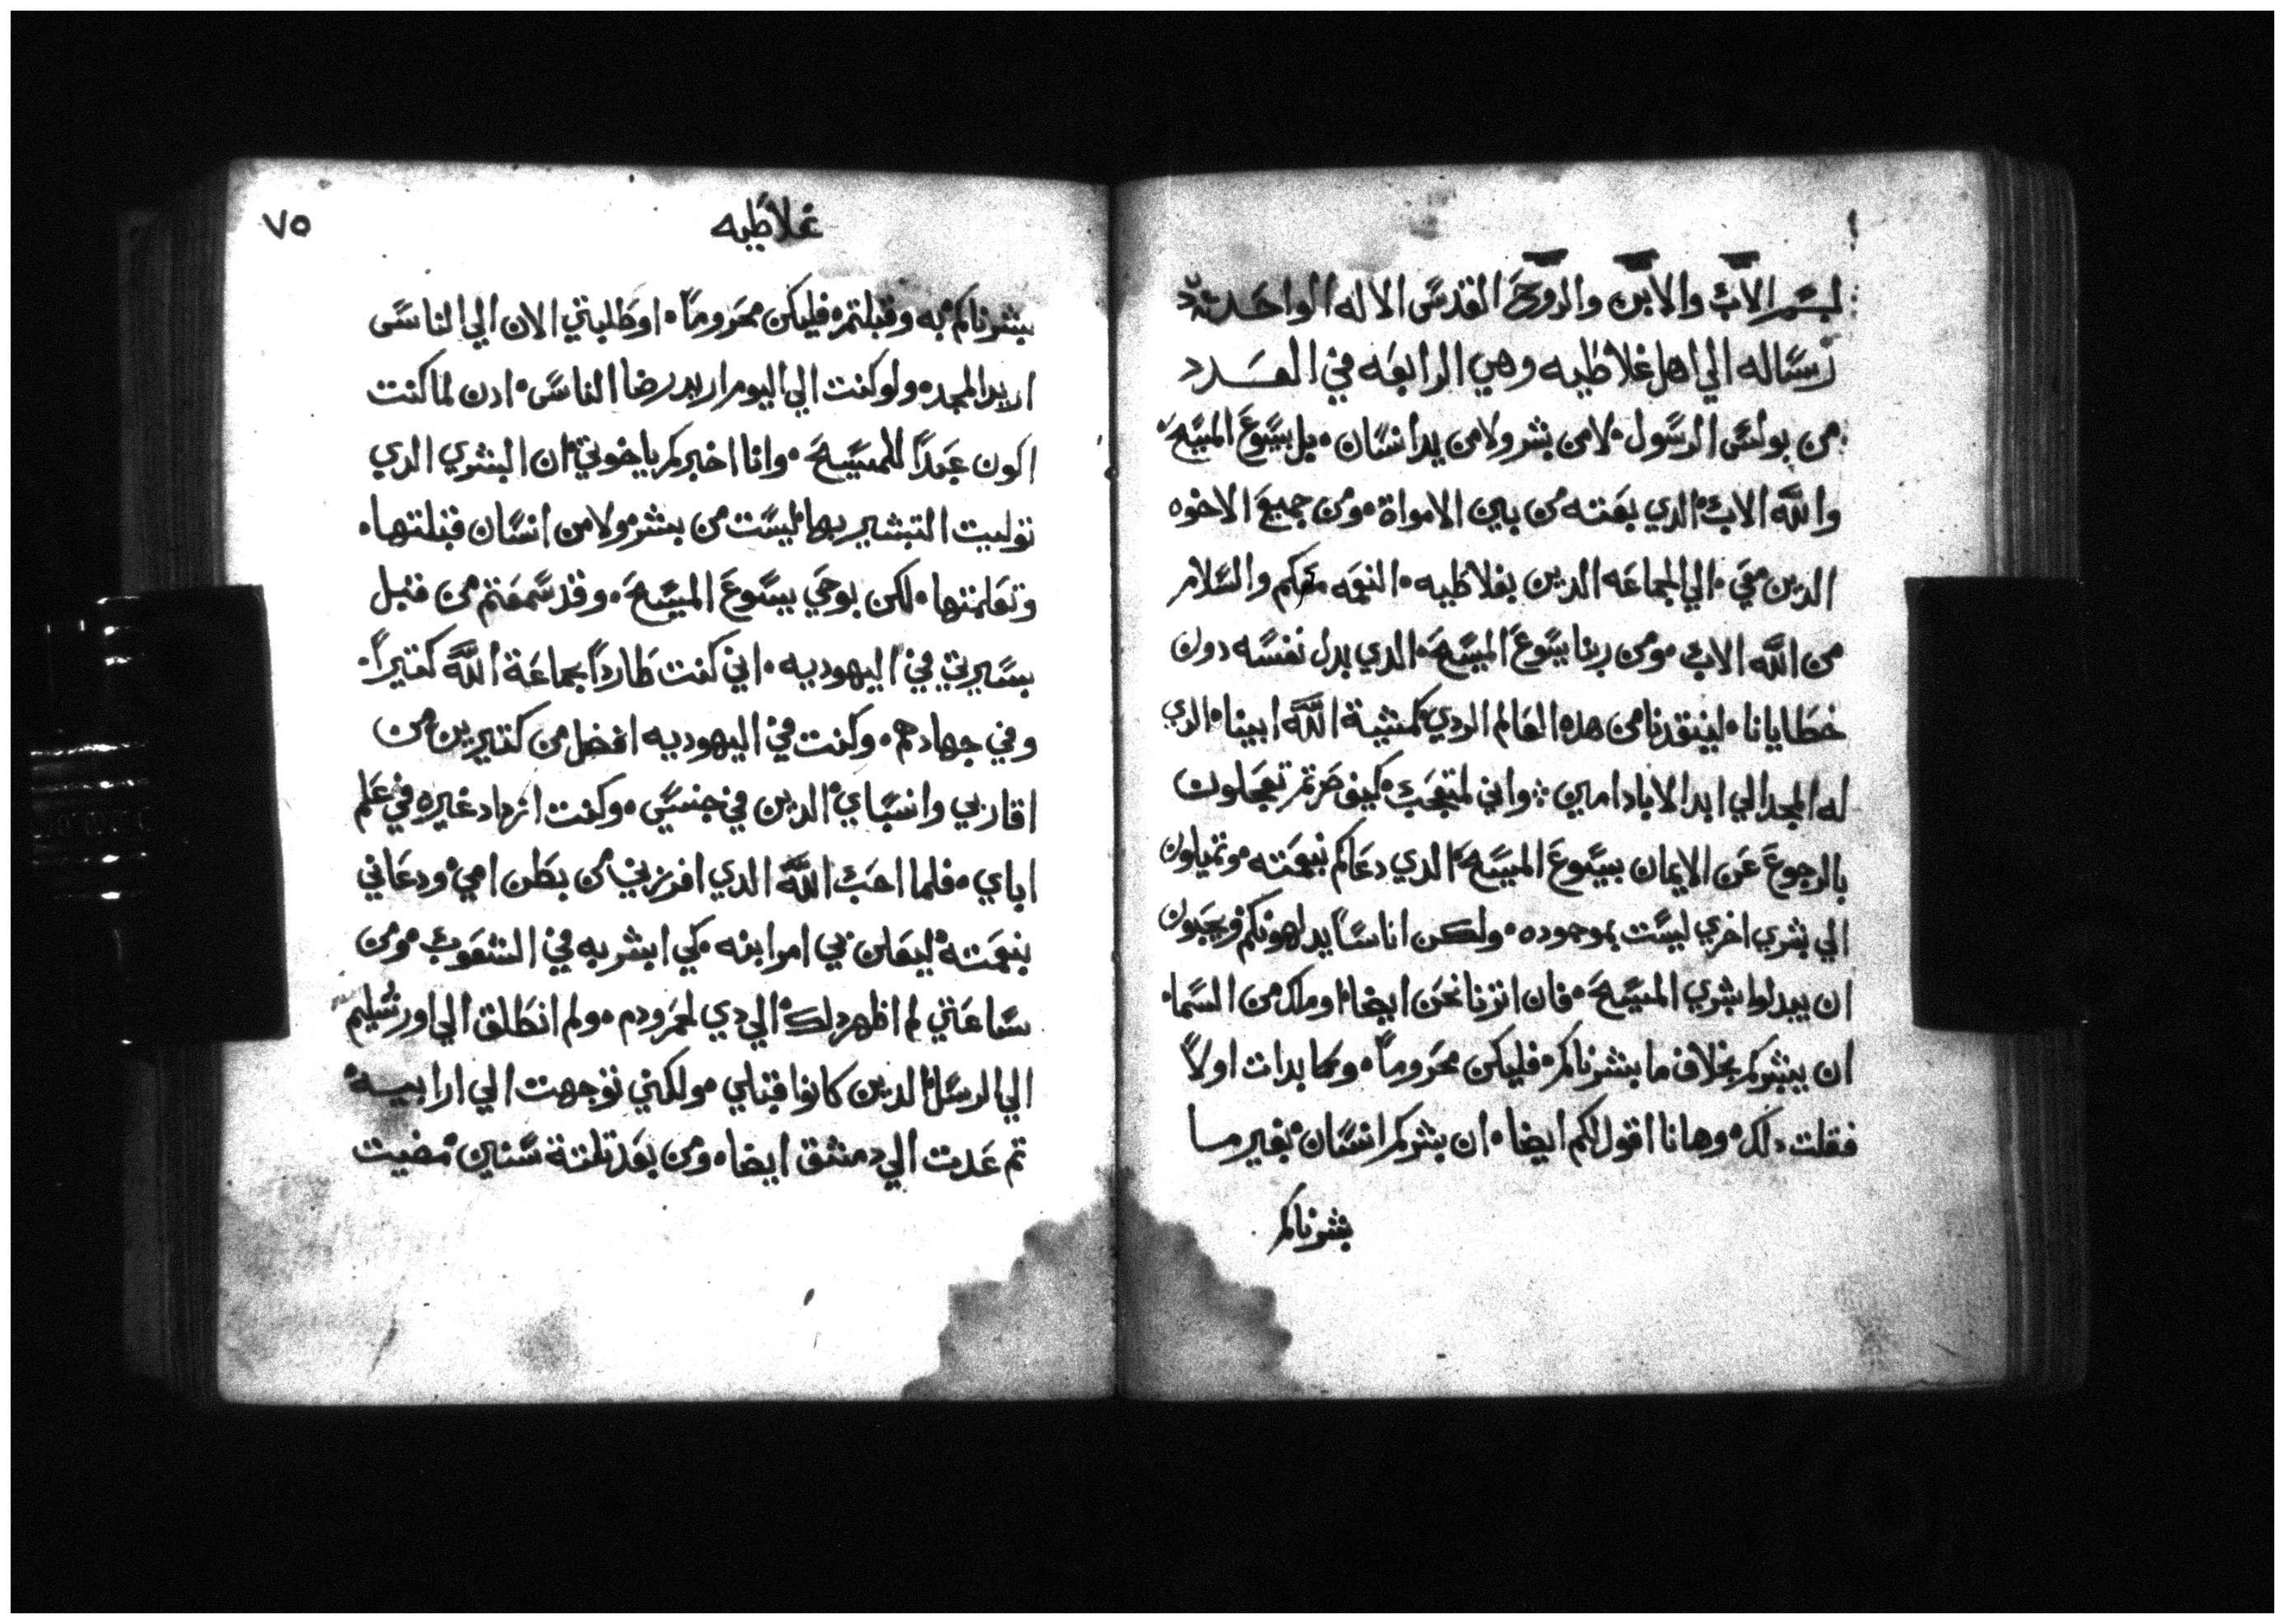 بسم الاب والابن والروح القدس الاله الواحد
رساله الي اهل غلاطيه وهي الرابعه في العدد
من بولس الرسول لا من بشر ولا من يد انسان بل بيسوع المسيح
والله الاب الدي بعته من بين الامواة ومن جميع الاخوه
الدين معي الي الجماعه الدين بغلاطيه النعمه معكم والسلام
من الله الاب ومن ربنا يسوع المسيح الدي بدل نفسه دون
خطايانا لينقدنا من هده العالم الردي كمشية الله ابينا الدي
له المجد الي ابد الاباد امين واني لمتعجب كيف صرتم تعجلون
بالرجوع عن الايمان بيسوع المسيح الدي دعاكم بنعمته وتميلون
الي بشري اخري ليست بموجوده ولكن اناسا يدلهونكم ويحبون
ان يبدلوا بشري المسيح فان انزنا نحن ايضا او ملك من السما
ان يبشركم بخلاف ما بشرناكم فليكن محروما وكما بدات اولا
فقلت دلك وها انا اقول لكم ايضا ان بشركم انسان بغير ما
بشرناكم
غلاطيه
٧٥
بشرناكم به وقبلتمره فليكن محروما او طلبتي الان الي الناس
اريد المجد ولو كنت الي اليوم اريد رضا الناس ادن لما كنت
اكون عبدا للمسيح وانا اخبركم ياخوتي ان البشري الدي
توليت التبشير بها ليست من بشر ولا من انسان قبلتها
وتعلمتها لكن بوحي يسوع المسيح وقد سمعتم من قبل
بسيرتي في اليهوديه اني كنت طاردا بجماعة الله كتيرا
وفي جهادهم وكنت في اليهوديه افضل من كتيرين من
اقاربي وانسباي الدين في جنسي وكنت ازداد غيره في علم
اباي فلما احب الله الدي افرزني من بطن امي ودعاني
بنعمته ليعلن بي امر ابنه كي ابشر به في الشعوب ومن
ساعتي لم اظهر دلك الي دي لحم ودم ولم انطلق الي اورشليم
الي الرسل الدين كانوا قبلي ولكني توجهت الي ارابيه
تم عدت الي دمشق ايضا ومن بعد تلتة سنين مضيت